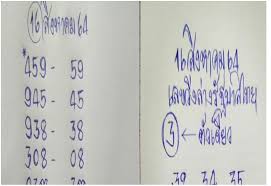 16 สิงหาคม 64
*459 - 59
945 - 45
938 - 38
308 - 08
16 สิงหาคม 64
เลขวิ่งล่างรัฐบาลไทย
3 ← ตัวเดียว
39 34 35